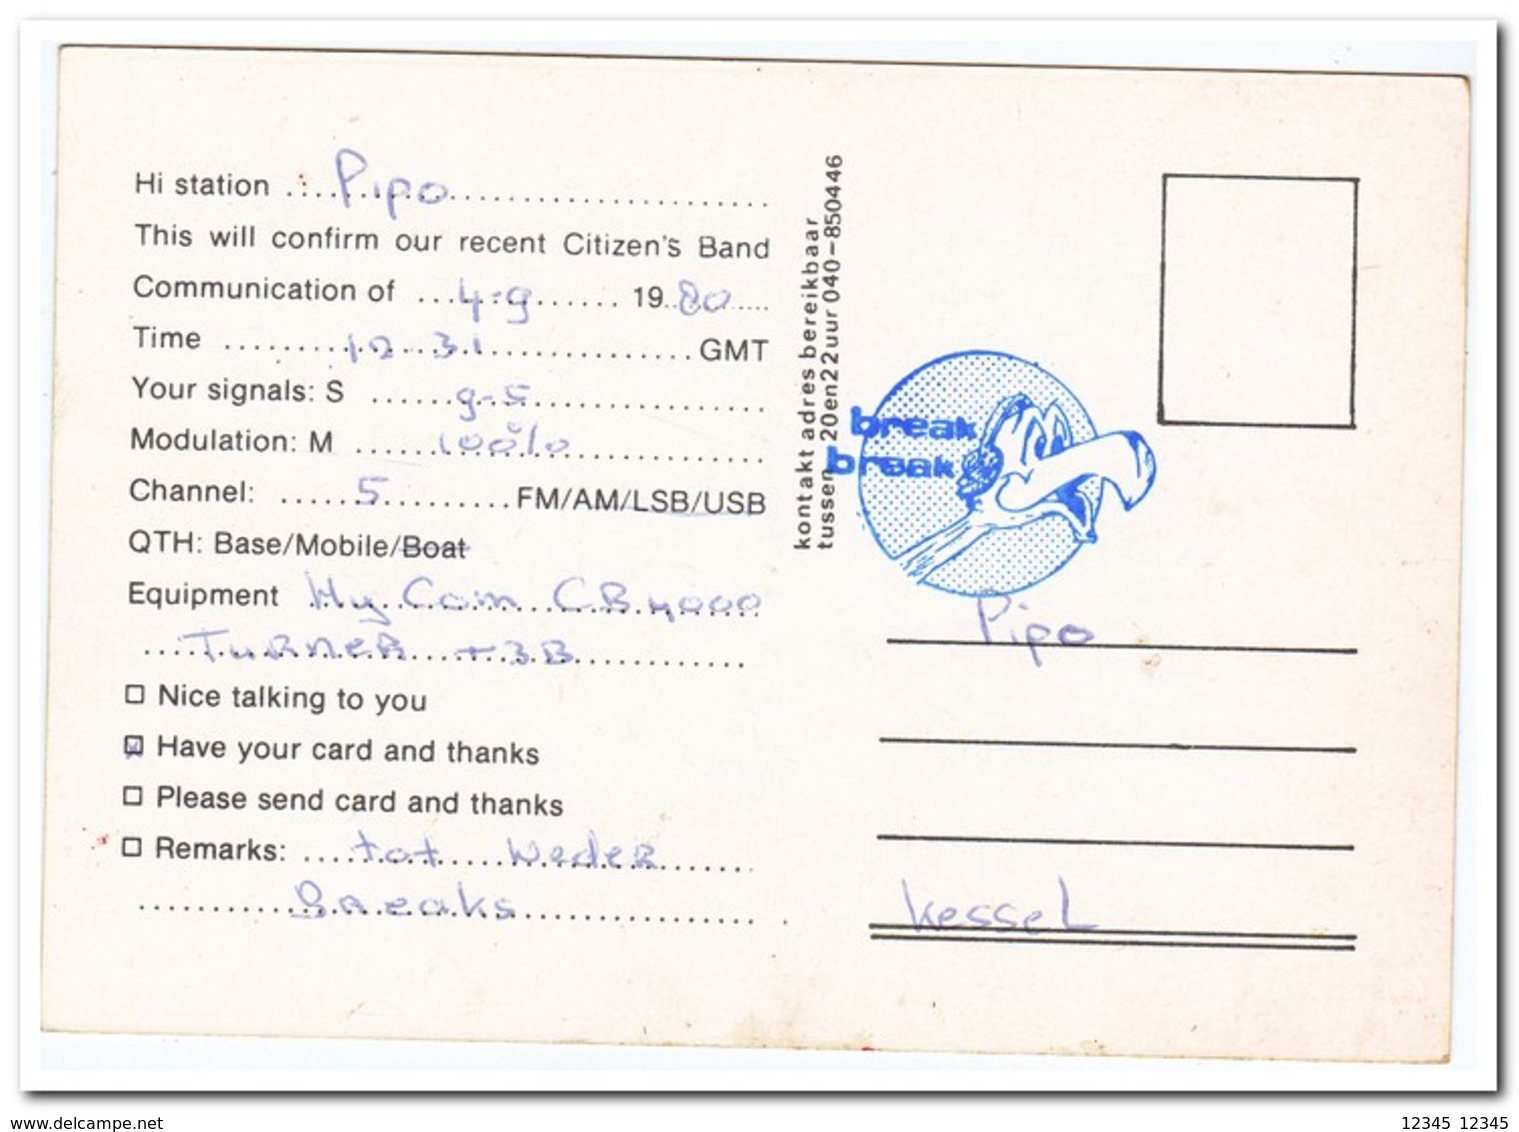 Hi station Pipo
This will confirm our recent Citizen's Band
Communication of 4-9 1980
Time 12-31 GMT
Your signals: S 9-5
Modulation: M 100%
Channel: 5 FM/AM/LSB/USB
QTH: Base/Mobile/Boat
Equipment Hy Com CB4000
TURNER +3B
Nice talking to you
Have your card and thanks
Please send card and thanks
Remarks: tot weder
Breaks
kontakt adres bereikbaar
tussen 20en22uur 040-850446
break
break
Pipo
Kessel
www.delcampe.net
12345 12345